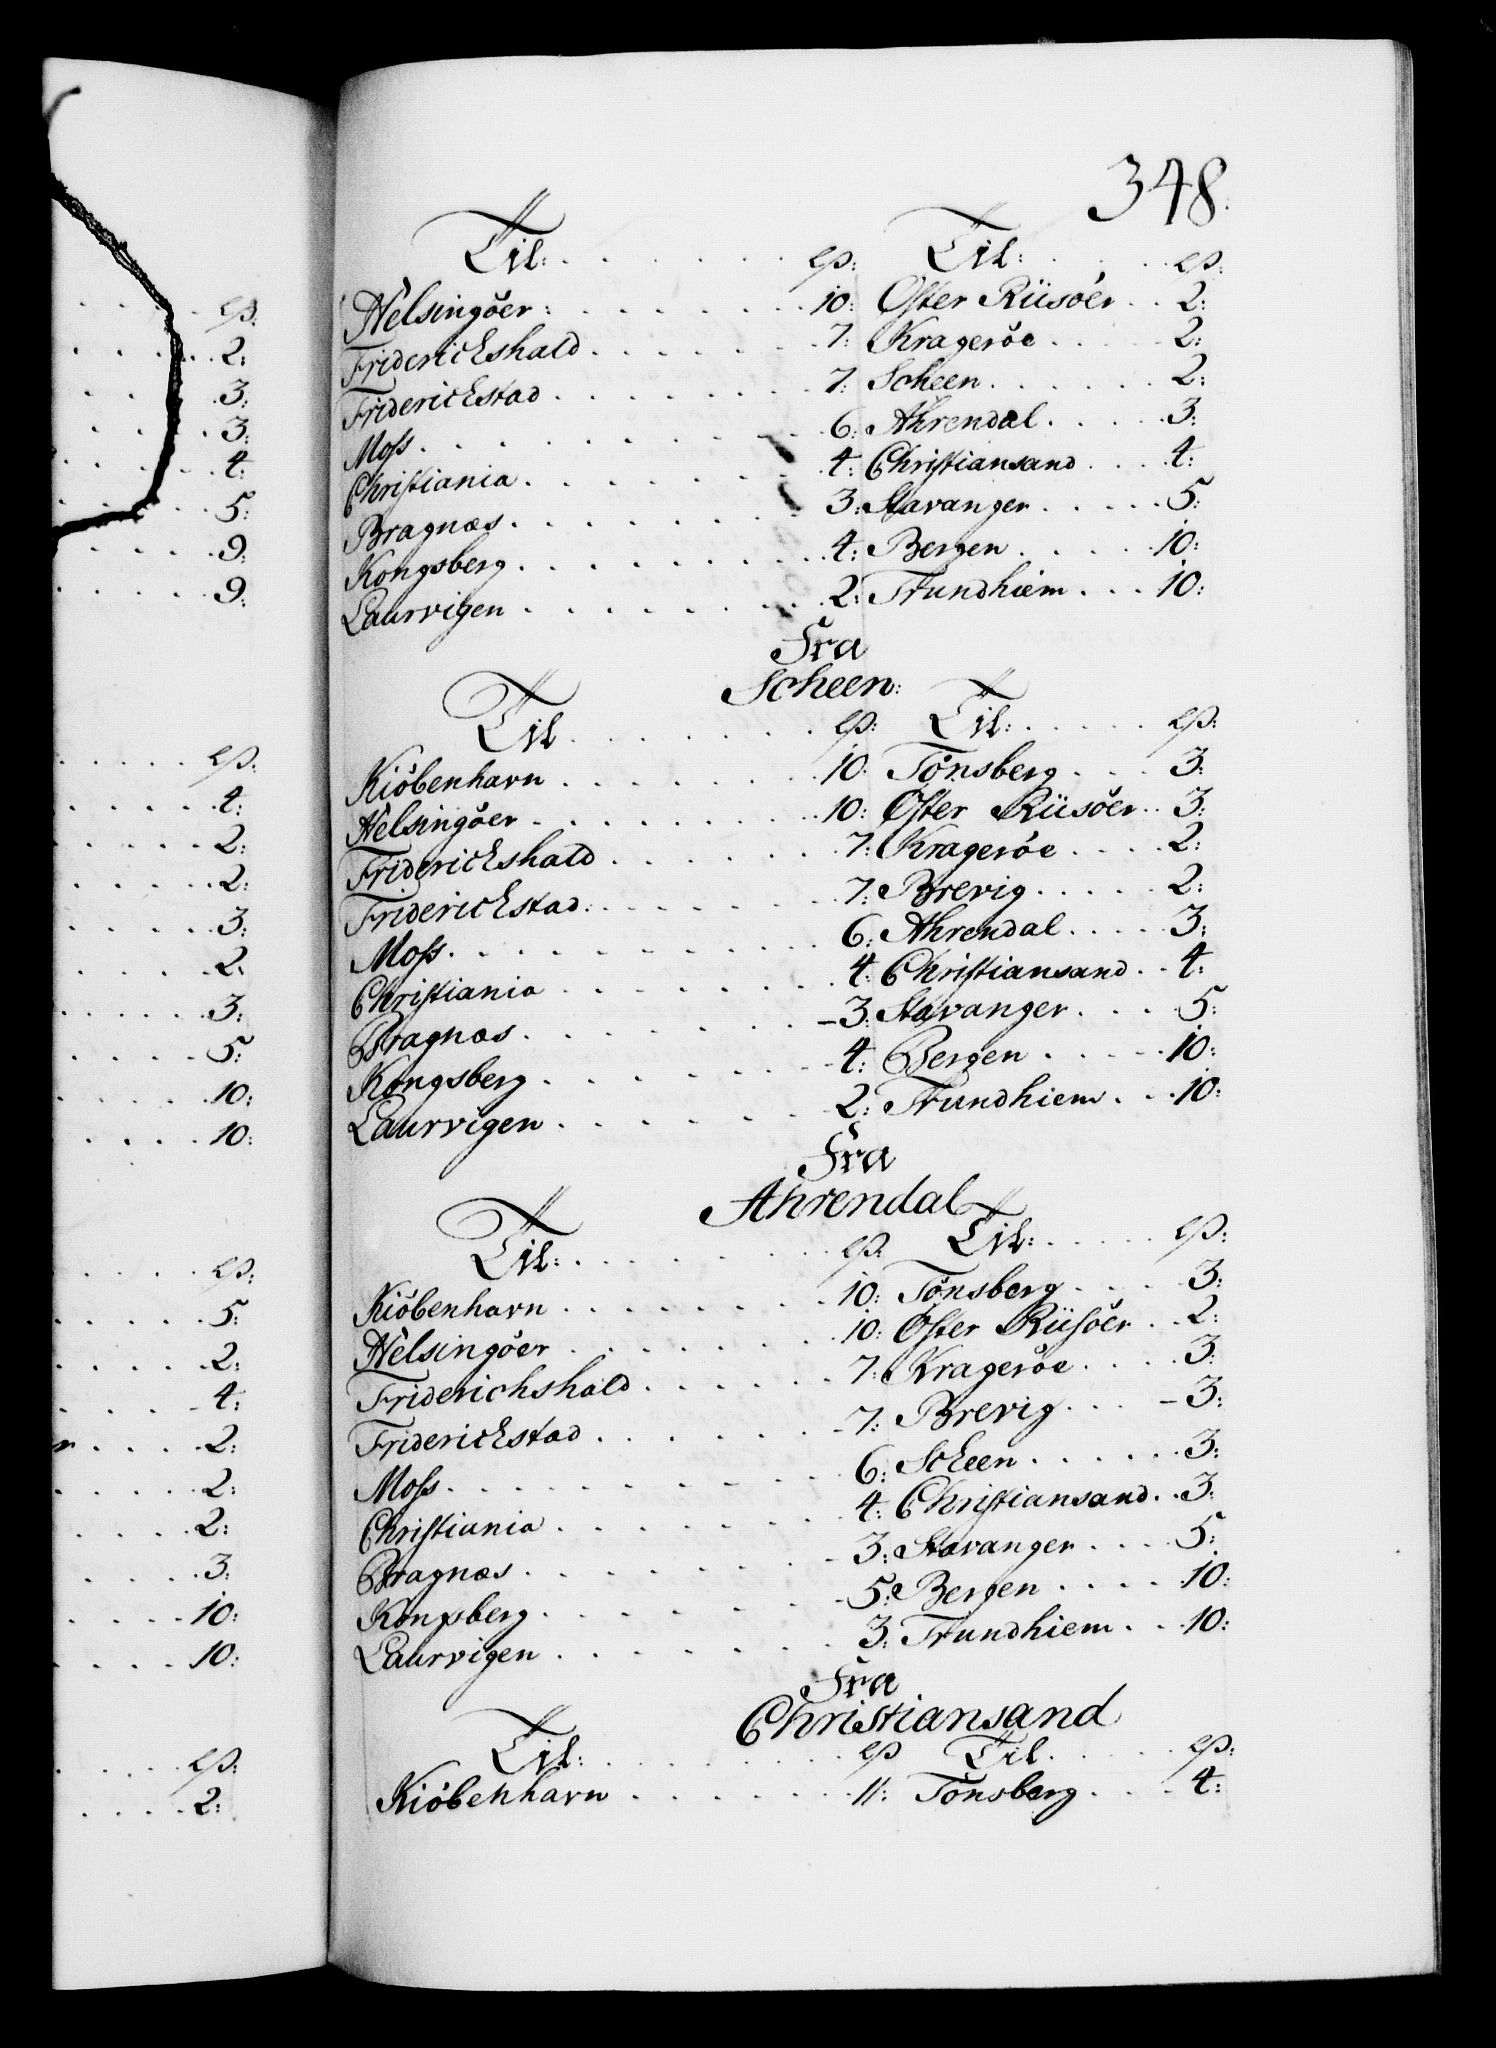 348.
Til: . . . . . . . ₻: Til: . . . . ₻:
Helsingöer: . . . . . . . 10: Öster Riisöer . . 2:
Friderichshald . . . . . . . 7: Kragerøe . . . . 2:
Friderichstad . . . . . . . 7: Scheen . . . . . . 2:
Moss . . . . . . . . . . 6: Ahrendal . . . . 3:
Christiania . . . . . . . 4: Christiansand . . . 4:
Bragnæs . . . . . . . . 3: Stavanger . . . . . 5:
Kongsberg . . . . . . . . 4: Bergen . . . . . 10:
Laurvigen . . . . . . . . 2: Trundhiem . . . 10:
Fra
Scheen:
Til . . . . . . . Til: . . . . .
Kiöbenhavn . . . . . . . 10: Tönsberg . . . 3:
Helsingöer . . . . . . . . 10: Öster Riisöer . . 3:
Friderichshald . . . . . . 7: Kragerøe . . . . 2:
Friderichstad: . . . . . . . 7: Brevig . . . . . 2:
Moss . . . . . . . . . . 6: Ahrendal . . . . 3:
Christiania . . . . . . . 4: Christiansand . . 4:
Bragnæs . . . . . . . . 3: Stavanger . . . . 5:
Kongsberg . . . . . . . 4: Bergen . . . . . 10:
Laurvigen . . . . . . . 2: Trundhiem . . . 10:
Fra
Ahrendal
Til: . . . . . . . Til: . . . . .
Kiöbenhavn . . . . . . . 10: Tönsberg . . . . 3:
Helsingöer . . . . . . . 10: Öster Riisöer . . 2:
Friderichshald . . . . . . 7: Kragerøe . . . . 3:
Friderichstad . . . . . . 7: Brevig . . . 3:
Moss . . . . . . . . . 6: Scheen . . . . . . 3:
Christiania . . . . . . . 4: Christiansand . . 3:
Bragnæs . . . . . . . . 3: Stavanger . . . . 5:
Kongsberg . . . . . . . 5: Bergen . . . . 10:
Laurvigen . . . . . . . 3: Trundhiem . . 10:
Fra
Christiansand
Til: . . . . . . . Til . . . . .
Kiöbenhavn . . . . . . . 11: Tönsberg . . . 4:
2:
3:
3:
4:
5:
9:
9:
4:
2:
2:
3:
2:
3:
5:
10:
10:
5:
2:
4:
2:
2:
2:
3:
10:
10:
2: